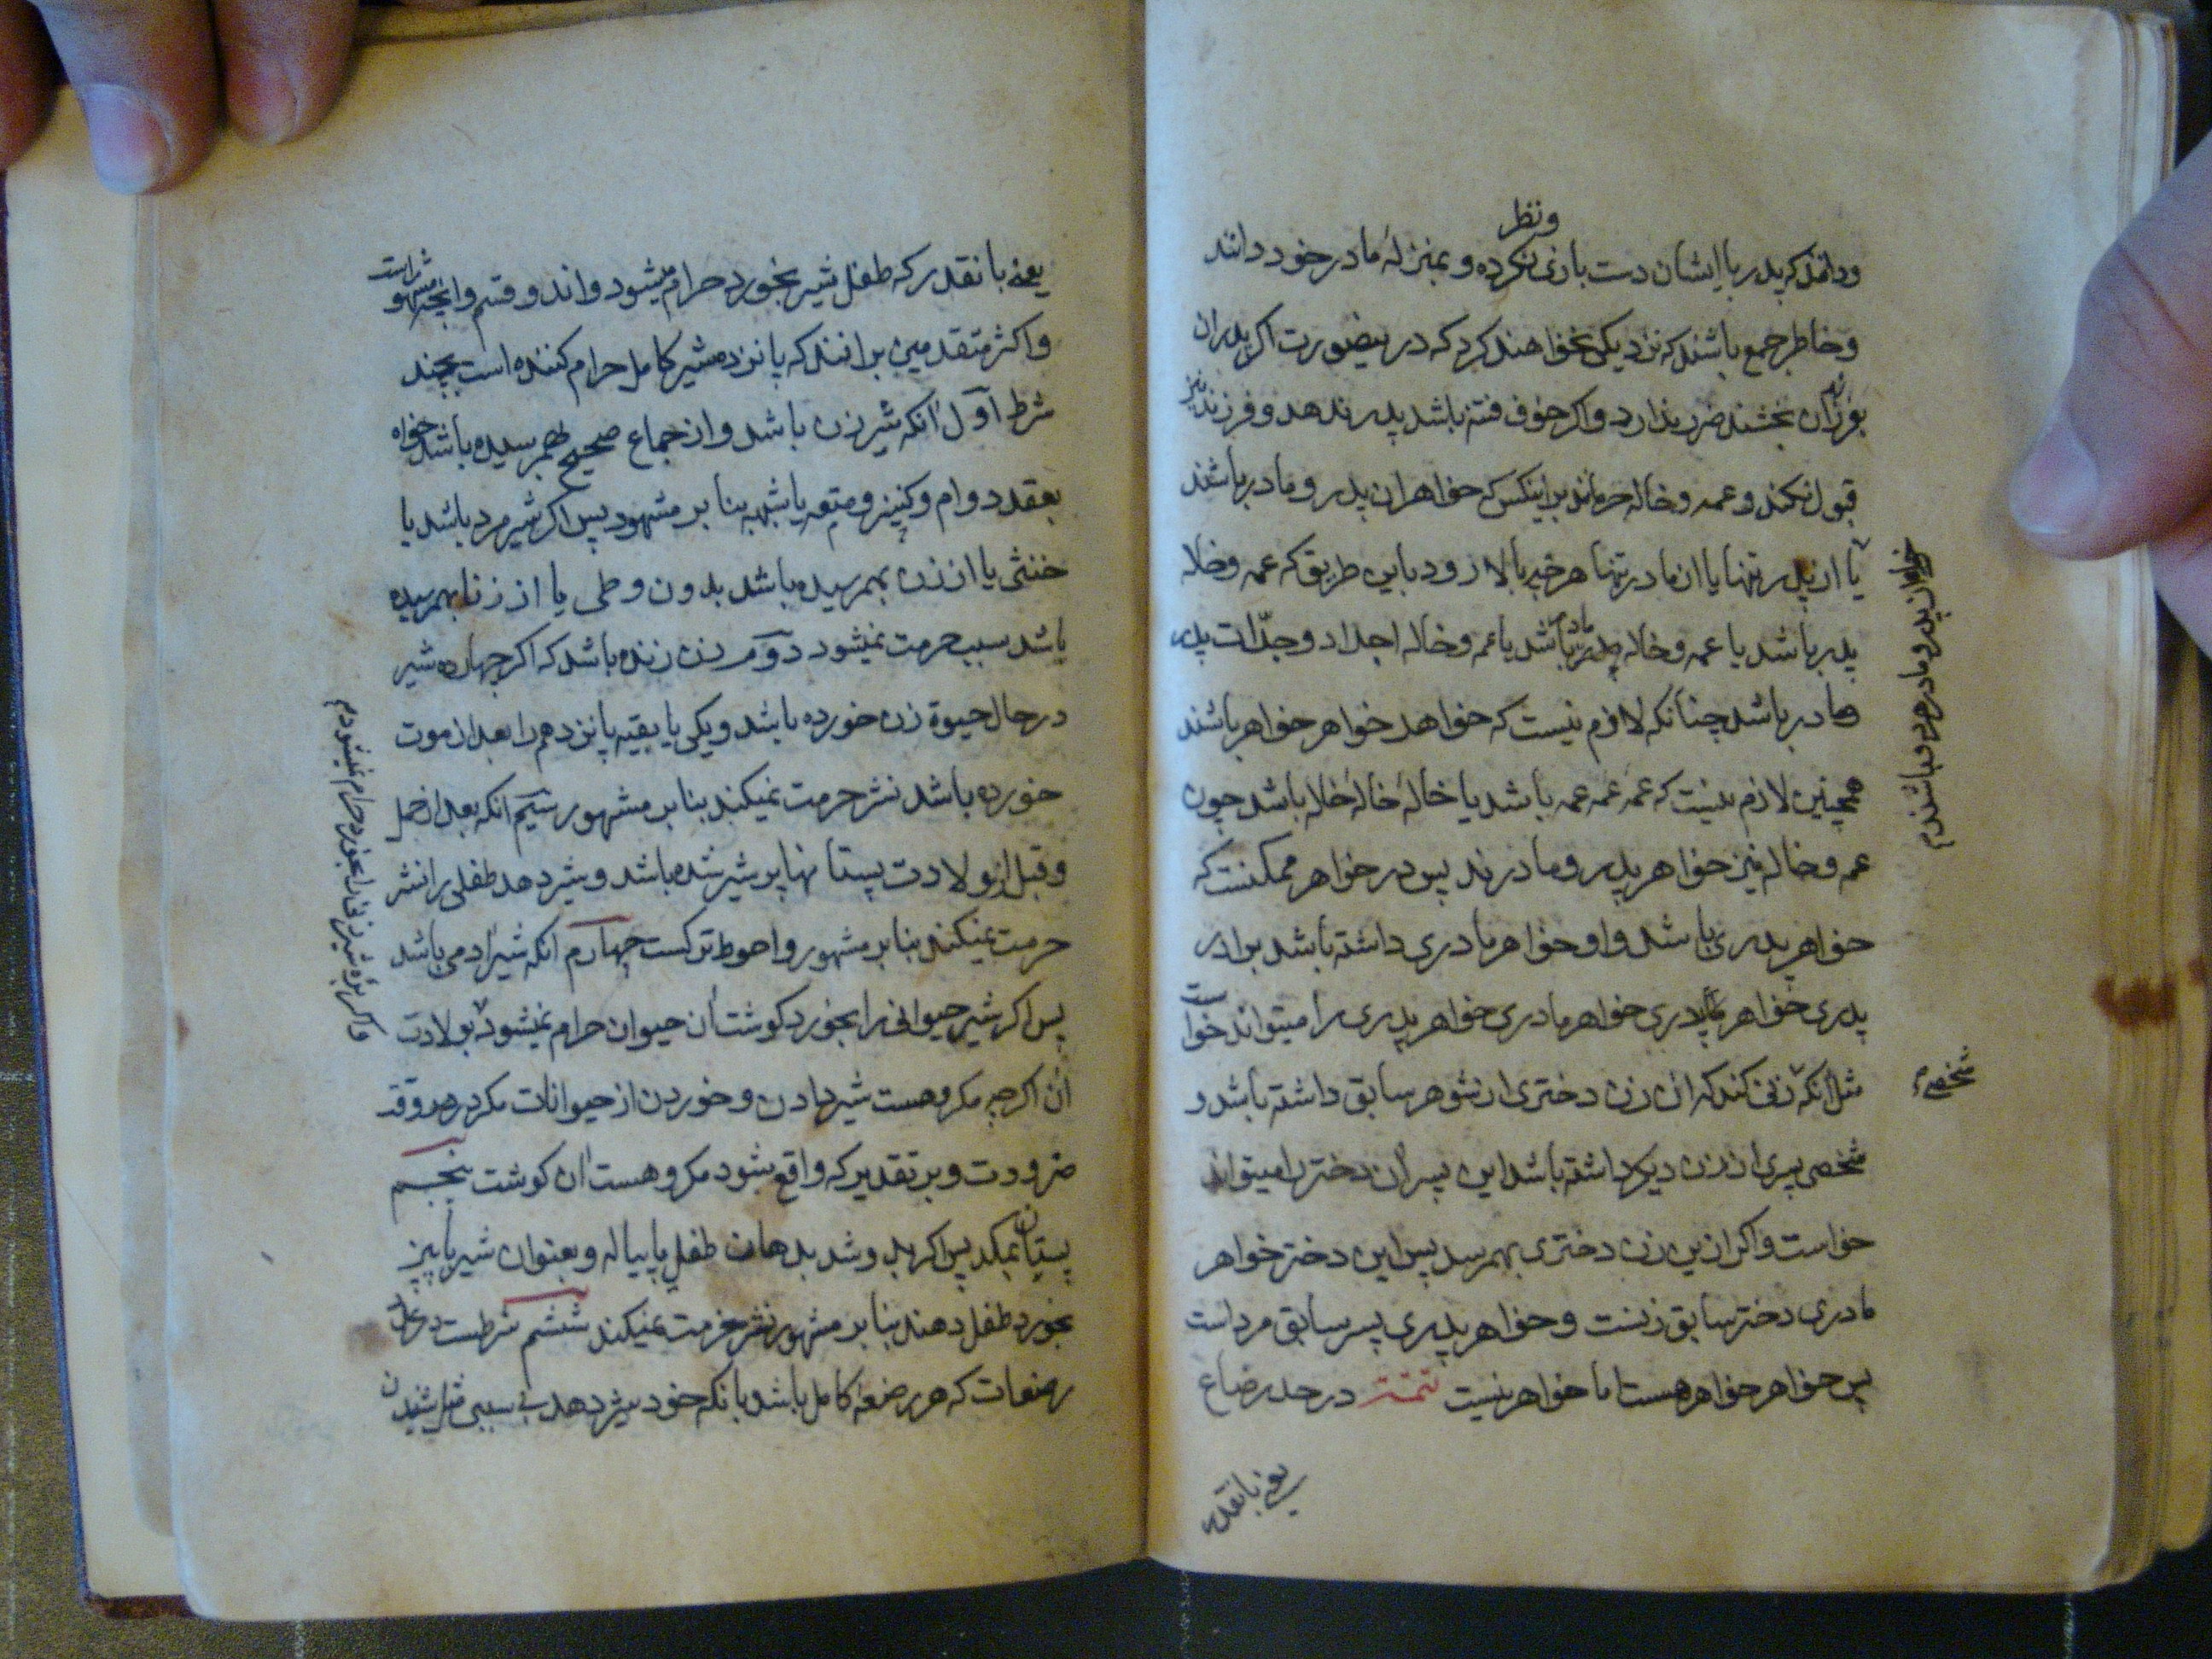 ونظر
ودانند که پدر با ایشان دست بازی نکرده و بمنزلهٔ مادر خود دانند
و خاطر جمع باشند که نزدیکی نخواهند کرد که در ینصورت اکر پدران
بفرزندان بخشند ضرر ندارد و اکر خوف فتنه باشد پدر ندهد و فرزند نیز
قبول نکند و عمه و خاله حرمانند بر اینکس که خواهران پدر و مادر باشند
یا از پدر تنها یا از مادر تنها هر چند بالا رود باین طریق که عمه و خاله
پدر باشد یا عمه و خاله مادر باشد یا عمه و خاله اجداد و جدّات پدر
مادر باشد چنانکه لازم نیست که خواهد خواهر خواهر باشند
همچنین لازم نیست که عمهٔ عمه عمه باشد یا خالهٔ خالهٔ خاله باشد چون
عمه و خاله نیز خواهر پدر و مادرند پس در خواهر ممکنست که
خواهر پدری باشد و او خواهر مادری داشته باشد برادر
پدری خواهر پدری خواهر مادری خواهر پدری را میتواند خواست
مثل انکه زنی کند که ان زن دختری از شوهر سابق داشته باشد و
شخصی پسری از زن دیکر داشته باشد این پسر ان دختر را میتواند
خواست و اکر ازین زن دختری بهم رسد پس این دختر خواهر
مادری دختر سابق زنست و خواهر پدری پسر سابق مرد است
پس خواهر خواهر هست اما خواهر نیست تتمته در حد رضاع
یعنی بانقدر
خواهران پدر و مادر هر دو باشند م
شخصی م
یعنی بانقدر که طفل شیر بخورد حرام میشود و اند و قسم و انچه مشهور است
و اکثر متقدمین برانند که پانزده شیر کامل حرام کننده است بچند
شرط اوّل انکه شیر زن باشد و از جماع صحیح بهم رسیده باشد خواه
بعقد دوام و کنیز و متعه یا شبهه بنا بر مشهور پس اکر شیر مرد باشد یا
خنثی یا از زن بهم رسیده باشد بدون وطی یا از زنا بهم رسیده
باشد سبب حرمت نمیشود دوّم زن زنده باشد که اکر چهارده شیر
در حال حیوة زن خورده باشد و یکی یا بقیه پانزدهم را بعد از موت
خورده باشد نشر حرمت نمیکند بنا بر مشهور سیّم انکه بعد از حمل
و قبل از ولادت پستانها پر شیر شده باشد و شیر دهد طفلی را نشر
حرمت نمیکند بنا بر مشهور و احوط ترکست چهارم انکه شیر ادمی باشد
پس اکر شیر حیوانی را بخورد کوشت ان حیوان حرام نمیشود بولادت
ان اکرچه مکروهست شیر دادن و خوردن از حیوانات مکر در وقت
ضرورت و بر تقدیر که واقع شود مکروهست ان کوشت پنجم
پستان بمکد پس اکر بدوشد بدهان طفل یا پیاله و بعنوان شیر یا پنیر
بخورد طفل دهند بنا بر مشهور نشر حرمت نمیکند ششم شرطست در عدد
رضعات که هر رضعه کامل باشد بانکه خود سیر دهد بی سببی مثل شنیدن
و اکر بزه شیر زنی را بخورد حرام نمیشود م